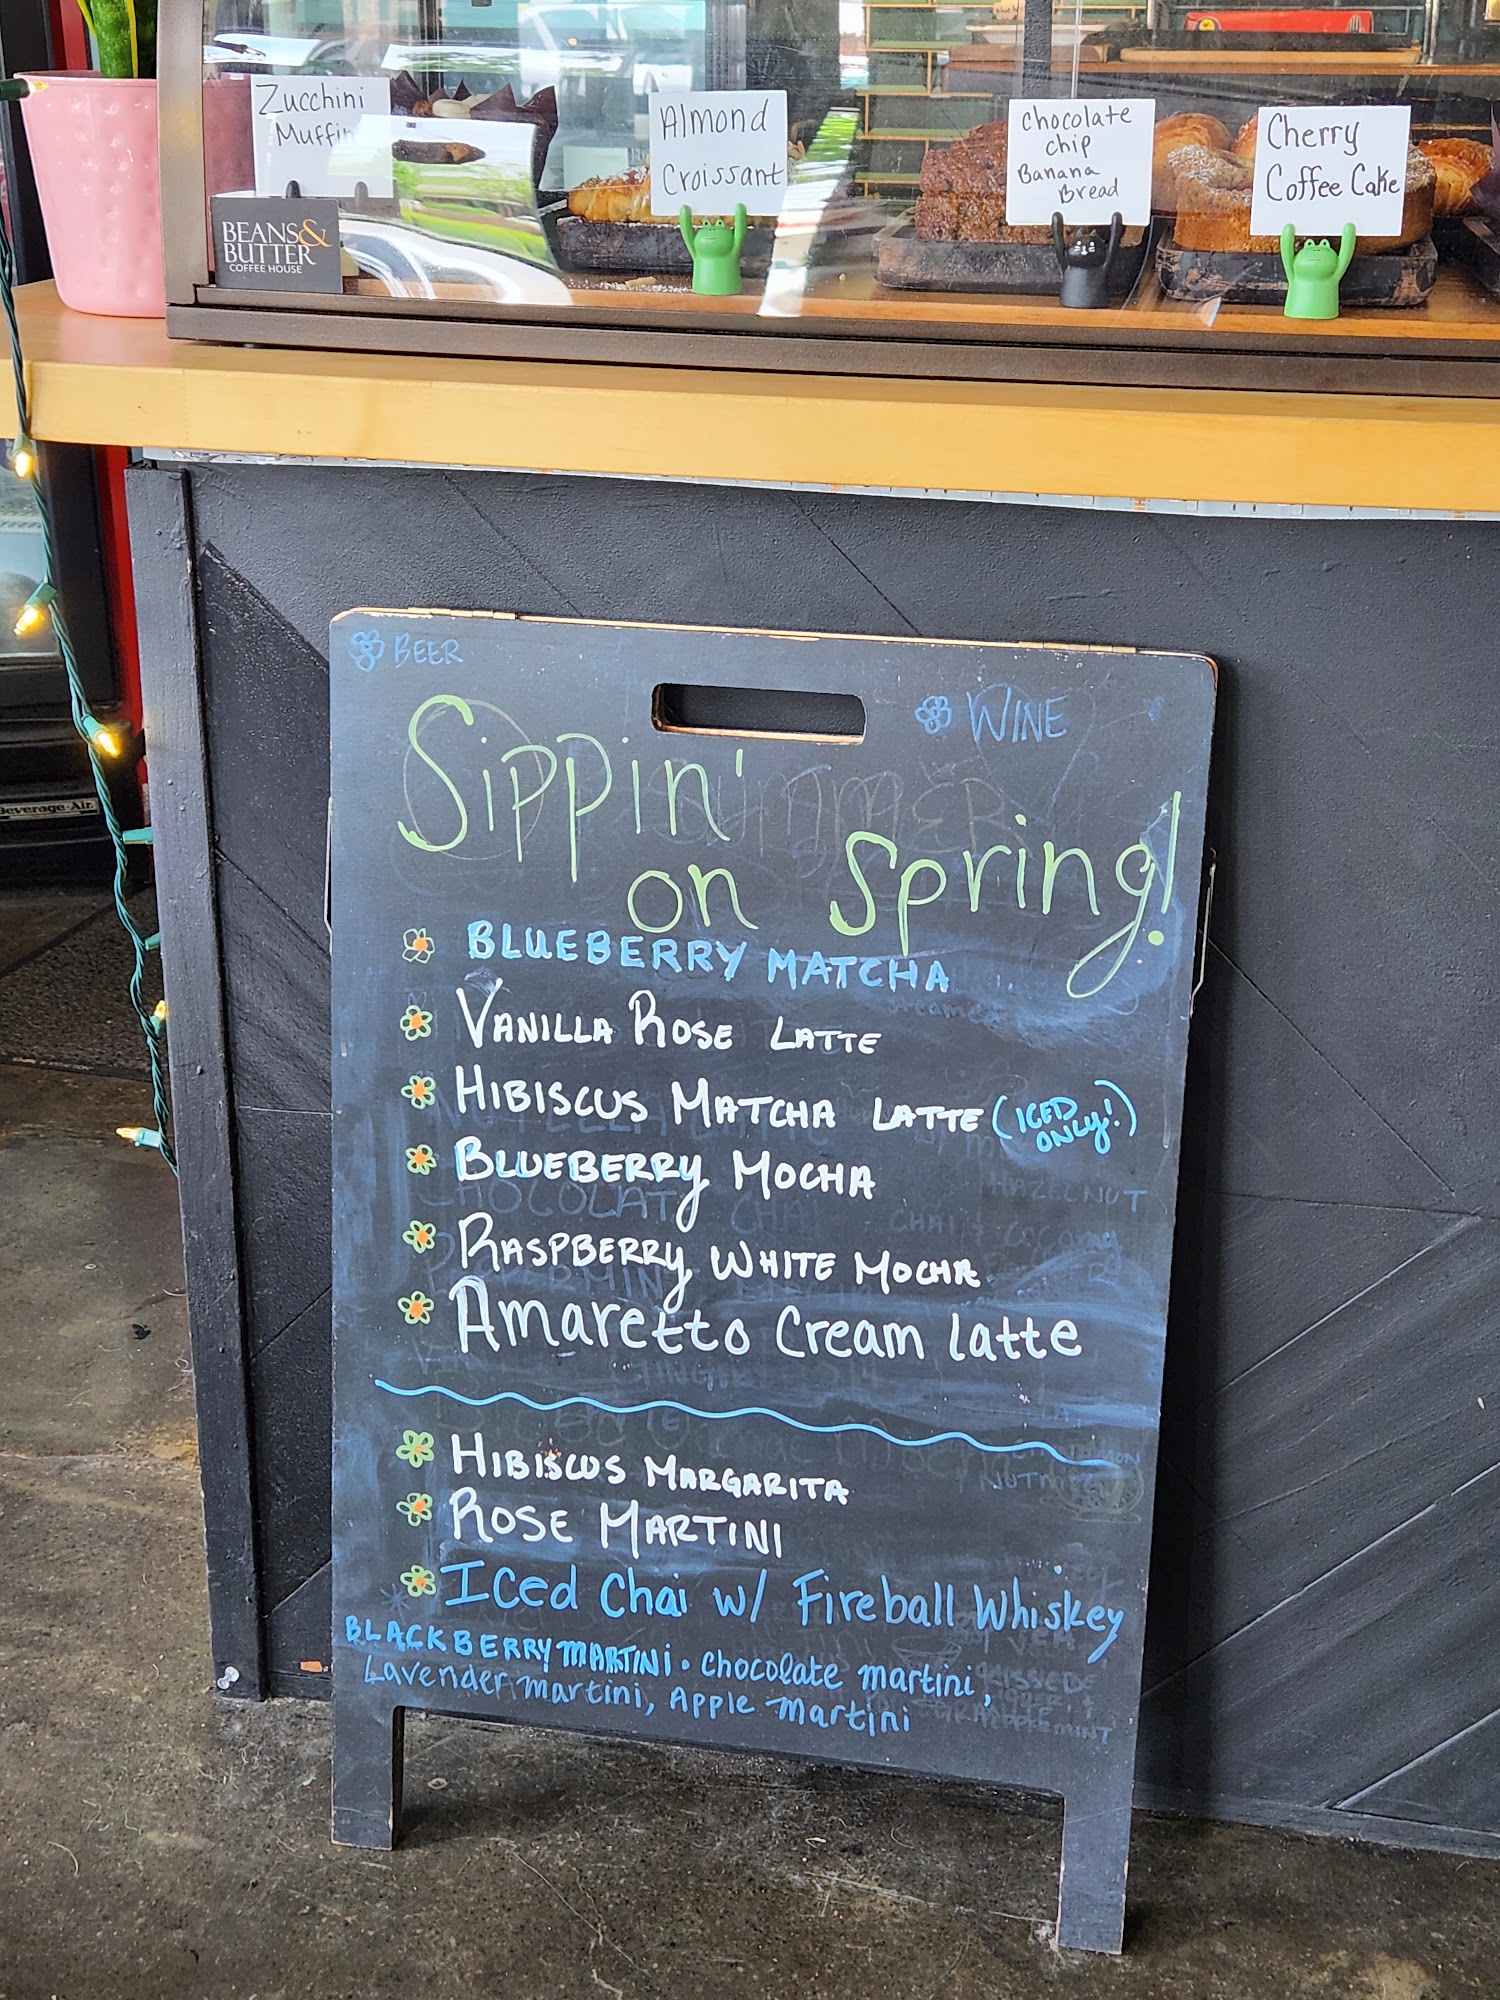 Zucchini
Muffin
Almond
Croissant
chocolate
chip
Banana
Bread
Cherry
Coffee Cake
BEANS&
BUTTER
COFFEE HOUSE
Beverage-Air
BEER
WINE
Sippin'
on Spring!
BLUEBERRY MATCHA
VANILLA ROSE LATTE
HIBISCUS MATCHA LATTE (ICED
ONLY!)
BLUEBERRY MOCHA
RASPBERRY WHITE MOCHA
Amaretto Cream latte
HIBISCUS MARGARITA
ROSE MARTINI
Iced Chai w/ Fireball Whiskey
BLACKBERRY MARTINI. chocolate martini,
Lavender martini, Apple martini